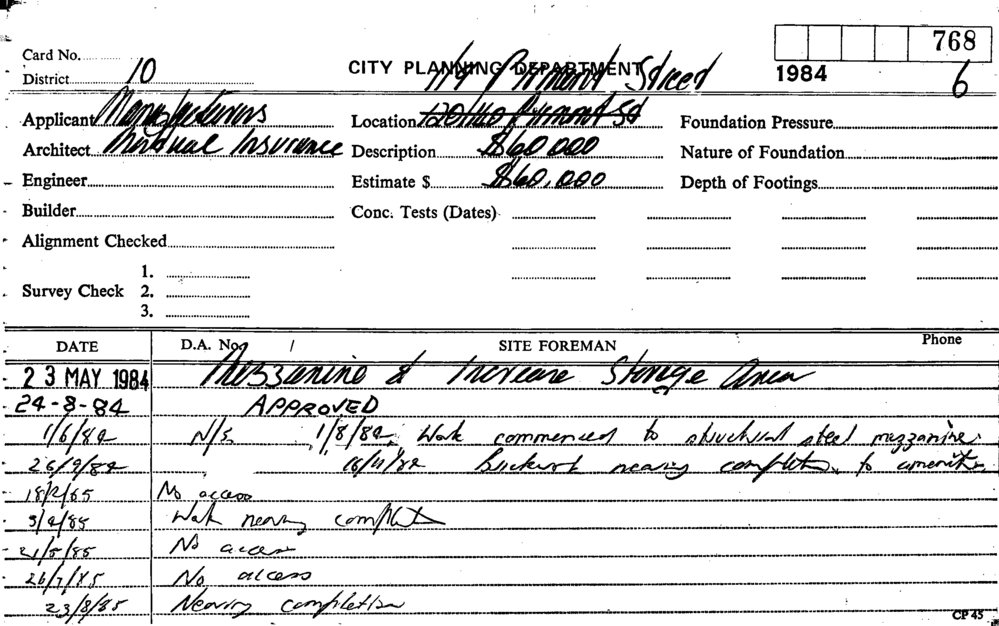 768
Card No.
CITY PLANNING DEPARTMENT
Pyrmont Street
1984
6
District 10
Applicant Manufacturers
Location Pyrmont St
Foundation Pressure
Architect Mutual Insurance
Description $60 000
Nature of Foundation
Engineer
Estimate $ $60,000
Depth of Footings
Builder
Conc. Tests (Dates)
Alignment Checked
1.
Survey Check 2.
3.
DATE D.A. No. / SITE FOREMAN Phone
23 MAY 1984 Mezzanine & Increase Storage Area
24-8-84 APPROVED
1/6/84 N/S 1/8/84 Work commenced to structural steel mezzanine
26/9/84 16/11/84 Brickwork nearing completion to
18/2/85 No access
3/4/85 Work nearing completion
21/5/85 No access
26/7/85 No access
23/8/85 Nearing completion
CP 45